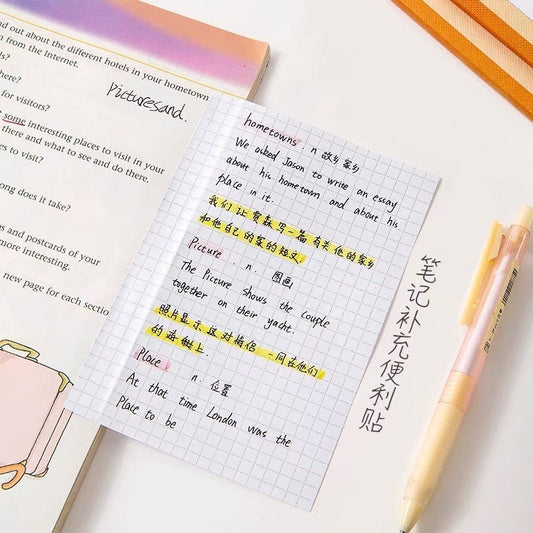 nd out about the different hotels in your hometown
n from the Internet.
ls?
here?
for visitors?
some interesting places to visit in your
there and what to see and do there.
es to visit?
ong does it take?
s and postcards of your
more interesting.
new page for each sectio
Picturesand.
hometowns n 故乡家乡
We asked Jason to write an essay
about his hometown and about his
place in it.
我们让贾森写一篇有关他的家乡
和他自己的家的短文
Picture . n. 图画
The Picture shows the couple
together on their yacht.
照片显示这对情侣一同在他们
的游艇上.
Place . n. 位置
At that time London was the
Place to be
笔记补充便利贴